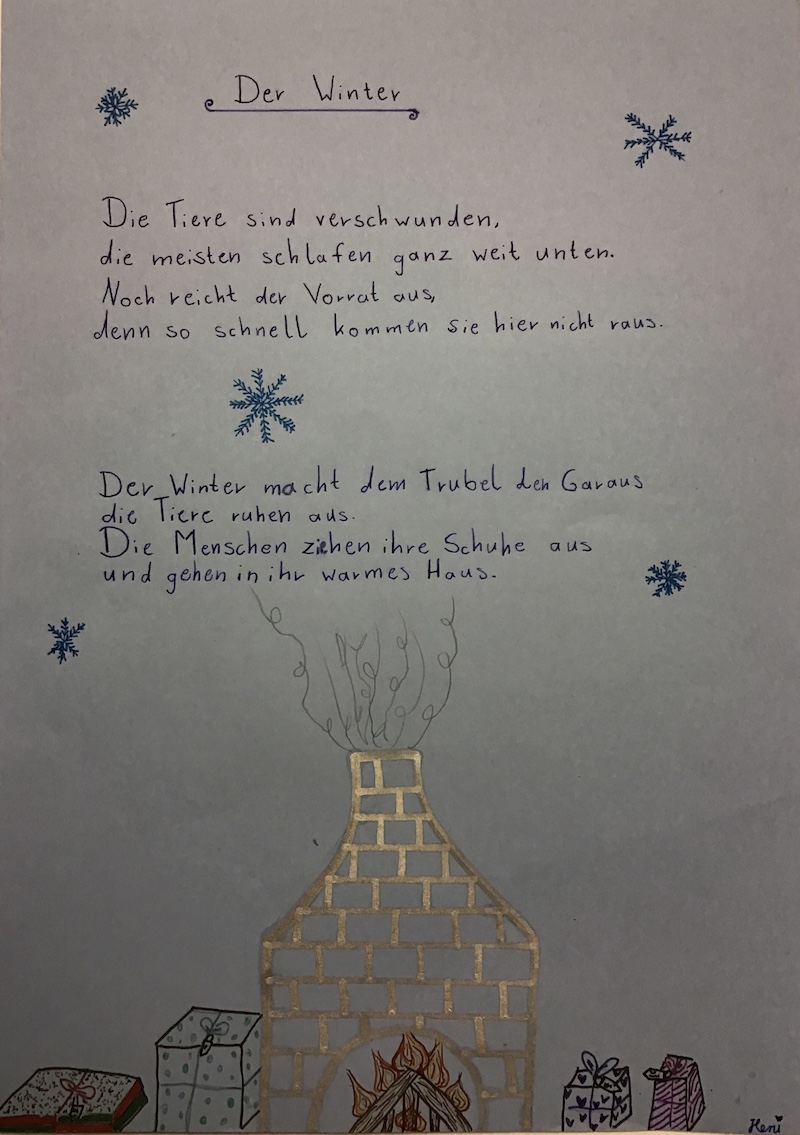 Der Winter
Die Tiere sind verschwunden,
die meisten schlafen ganz weit unten.
Noch reicht der Vorrat aus,
denn so schnell kommen sie hier nicht raus.
Der Winter macht dem Trubel den Garaus
die Tiere ruhen aus.
Die Menschen ziehen ihre Schuhe aus
und gehen in ihr warmes Haus.
Keni